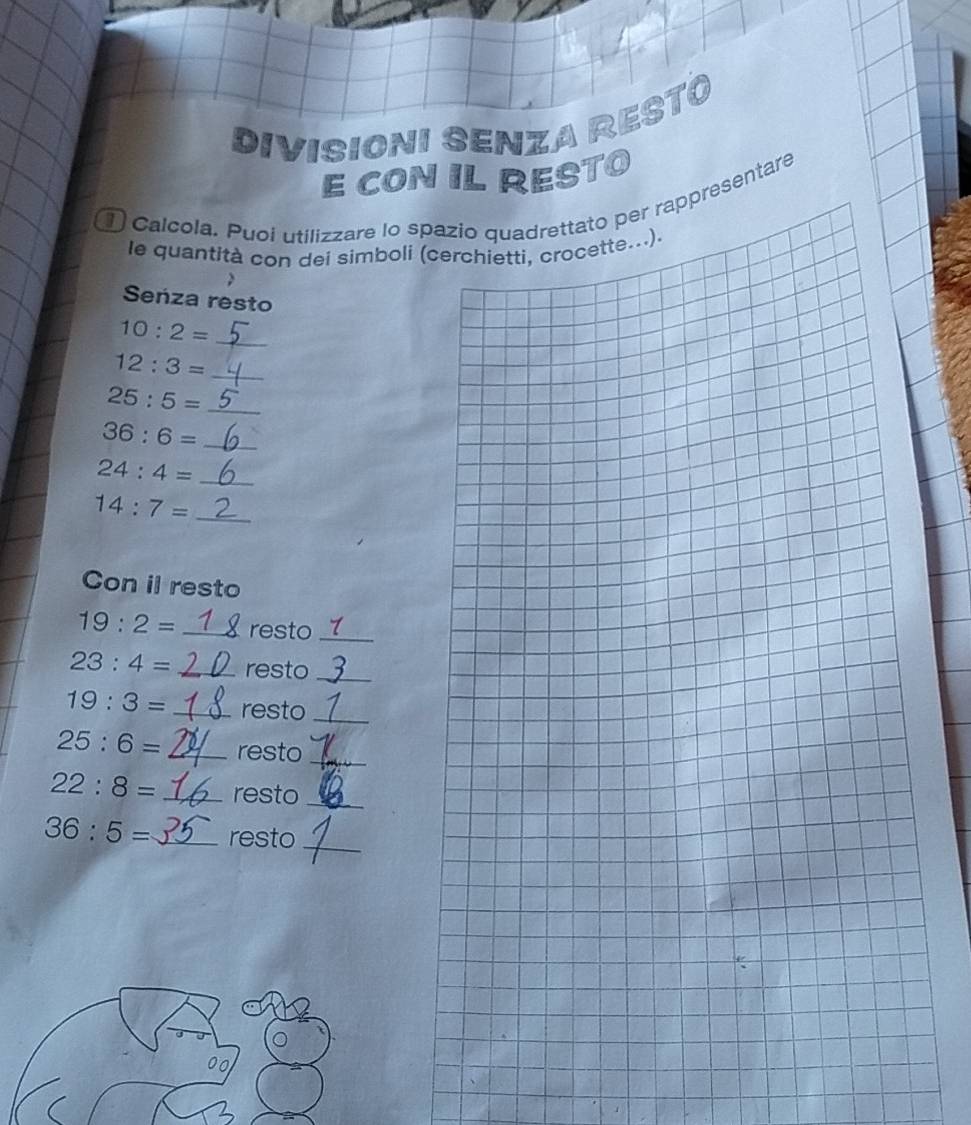 DIVISIONI SENZA RESTO
E CON IL RESTO
1 Calcola. Puoi utilizzare lo spazio quadrettato per rappresentare
le quantità con dei simboli (cerchietti, crocette...).
Senza resto
10 : 2 = 5
12 : 3 = 4
25 : 5 = 5
36 : 6 = 6
24 : 4 = 6
14 : 7 = 2
Con il resto
19 : 2 = 18 resto 1
23 : 4 = 20 resto 3
19 : 3 = 18 resto 1
25 : 6 = 24 resto 1
22 : 8 = 16 resto 6
36 : 5 = 35 resto 1